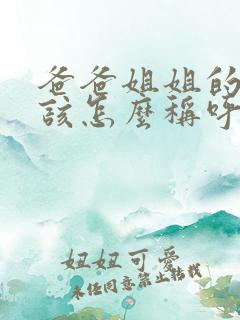 爸爸姐姐的
該怎麼稱呼
妞妞可愛
未经同意禁止转载